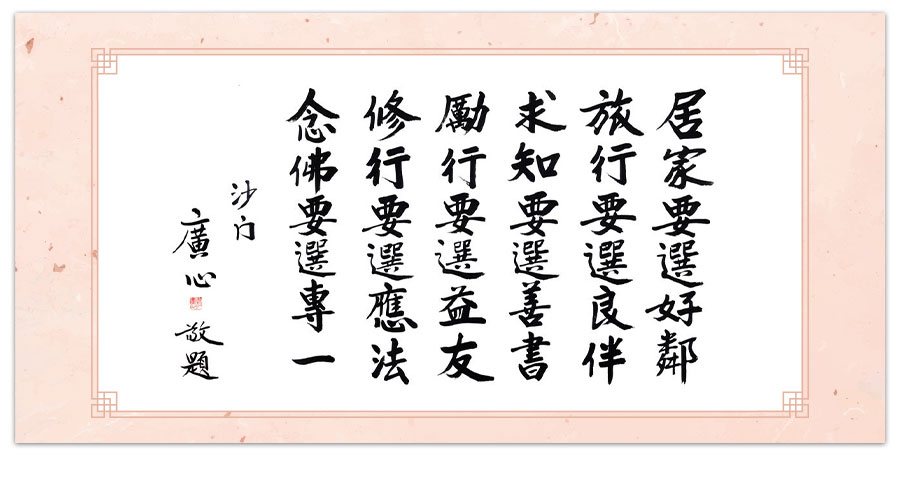 居家要選好鄰
旅行要選良伴
求知要選善書
勵行要選益友
修行要選應法
念佛要選專一
沙门
廣心
敬題